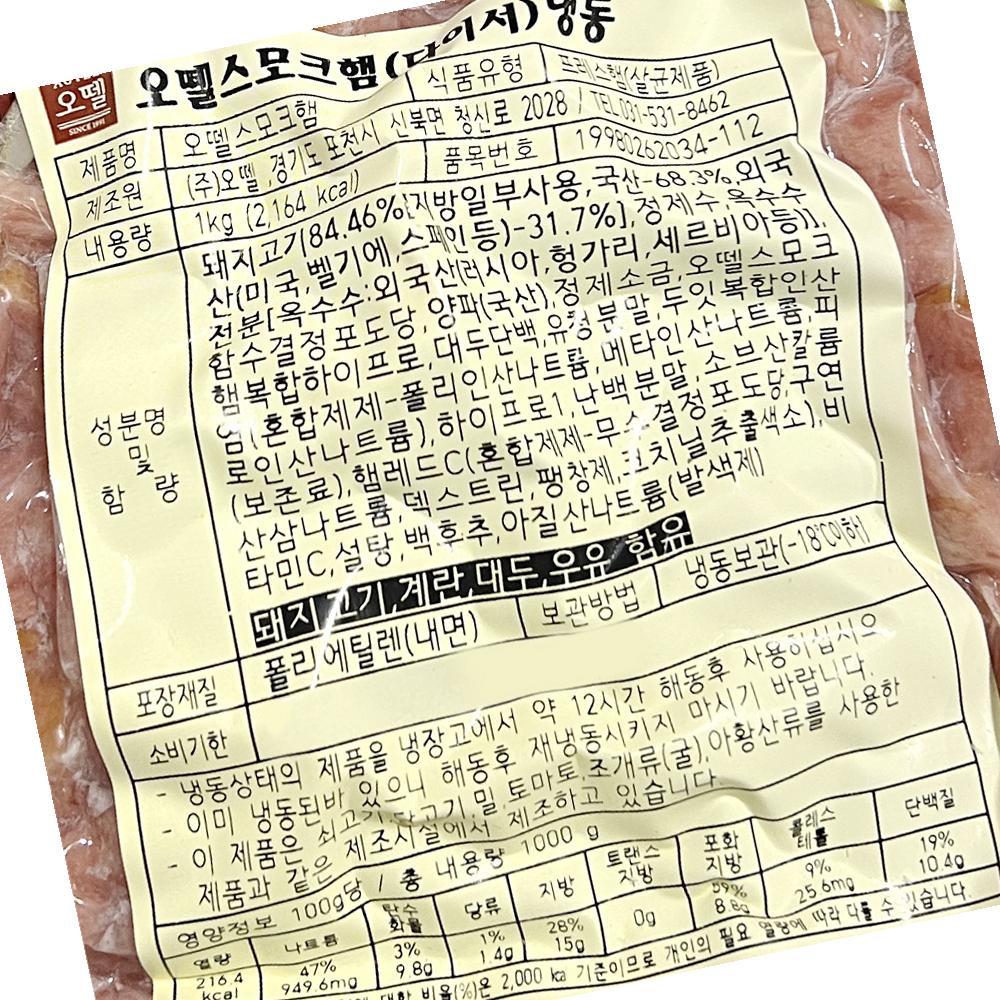 오뗄스모크햄(다이서)냉동
오뗄
SINCE 1991
제품명 오뗄스모크햄 식품유형 프레스햄(살균제품)
제조원 (주)오뗄,경기도 포천시 신북면 청신로 2028 / TEL.031-531-8462
내용량 1kg (2,164 kcal) 품목번호 19980262034-112
성분명 및 함량
돼지고기(84.46%,[지방일부사용,국산-68.3%,외국
산(미국,벨기에,스페인 등)-31.7%],정제수,옥수수
전분[옥수수:외국산(러시아,헝가리,세르비아등)],
함수결정포도당,양파(국산),정제소금,오뗄스모크
햄복합하이프로,대두단백,유청분말,두잇복합인산
염(혼합제제-폴리인산나트륨,메타인산나트륨,피
로인산나트륨),하이프로1,난백분말,소브산칼륨
(보존료),햄레드C(혼합제제-무수결정포도당,구연
산삼나트륨,덱스트린,팽창제,코치닐추출색소),비
타민C,설탕,백후추,아질산나트륨(발색제)
돼지고기,계란,대두,우유 함유
포장재질 폴리에틸렌(내면) 보관방법 냉동보관(-18℃이하)
소비기한
- 냉동상태의 제품을 냉장고에서 약 12시간 해동후 사용하십시오
- 이미 냉동된바 있으니 해동후 재냉동시키지 마시기 바랍니다.
- 이 제품은 쇠고기,닭고기,밀,토마토,조개류(굴),아황산류를 사용한
제품과 같은 제조시설에서 제조하고 있습니다.
영양정보 100g당 / 총 내용량 1000 g
열량 나트륨 탄수화물 당류 지방 트랜스지방 포화지방 콜레스테롤 단백질
47% 3% 1% 28% 59% 9% 19%
216.4 kcal 949.6mg 9.8g 1.4g 15g 0g 8.8g 25.6mg 10.4g
대한 비율(%)은 2,000 kcal 기준이므로 개인의 필요 열량에 따라 다를 수 있습니다.